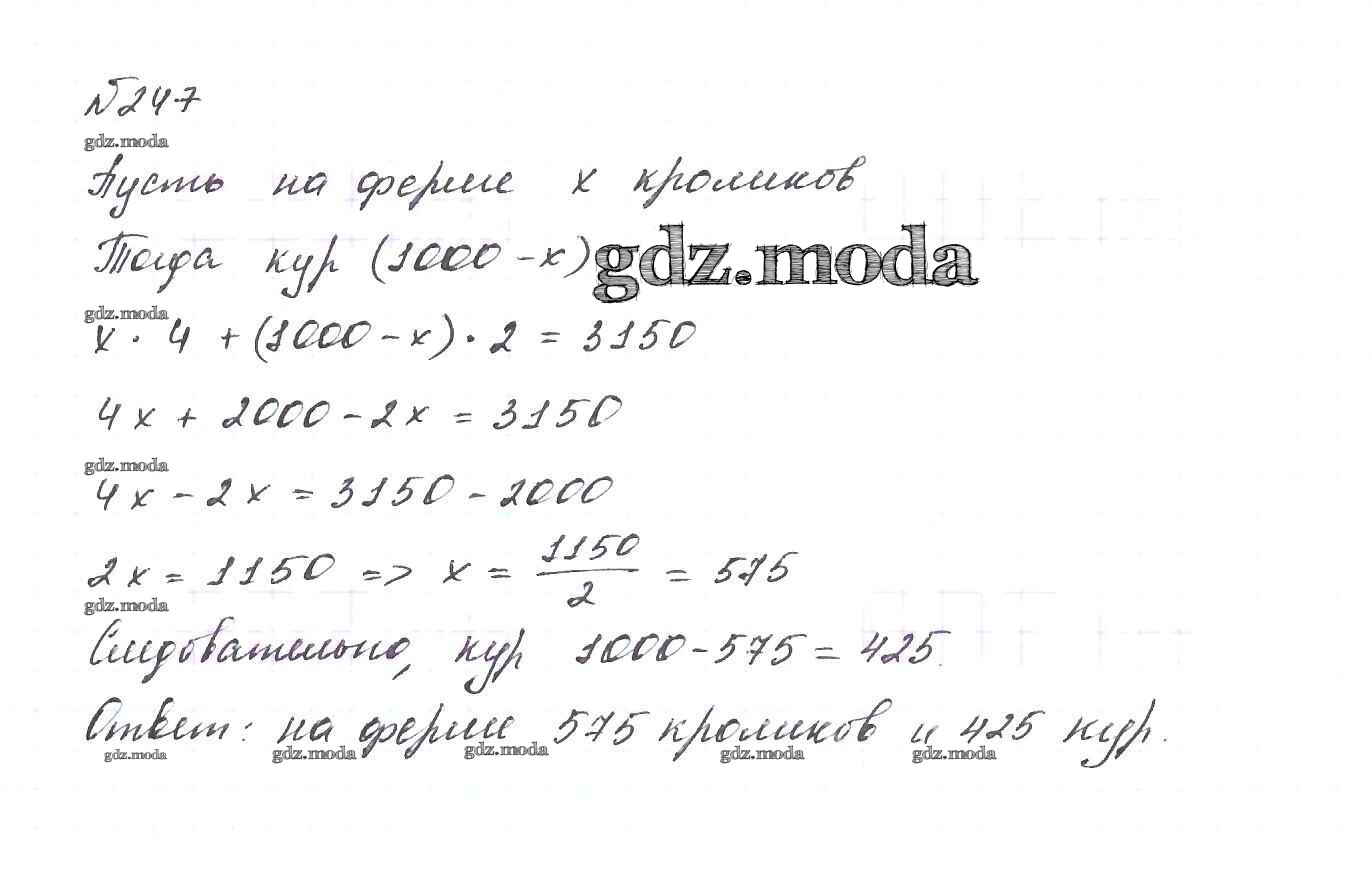 №247
gdz.moda
Пусть на ферме x кроликов
Тогда кур (1000 - x) gdz.moda
gdz.moda
x · 4 + (1000 - x) · 2 = 3150
4x + 2000 - 2x = 3150
gdz.moda
4x - 2x = 3150 - 2000
2x = 1150 => x = 1150/2 = 575
gdz.moda
Следовательно, кур 1000 - 575 = 425.
Ответ: на ферме 575 кроликов и 425 кур.
gdz.moda gdz.moda gdz.moda gdz.moda gdz.moda